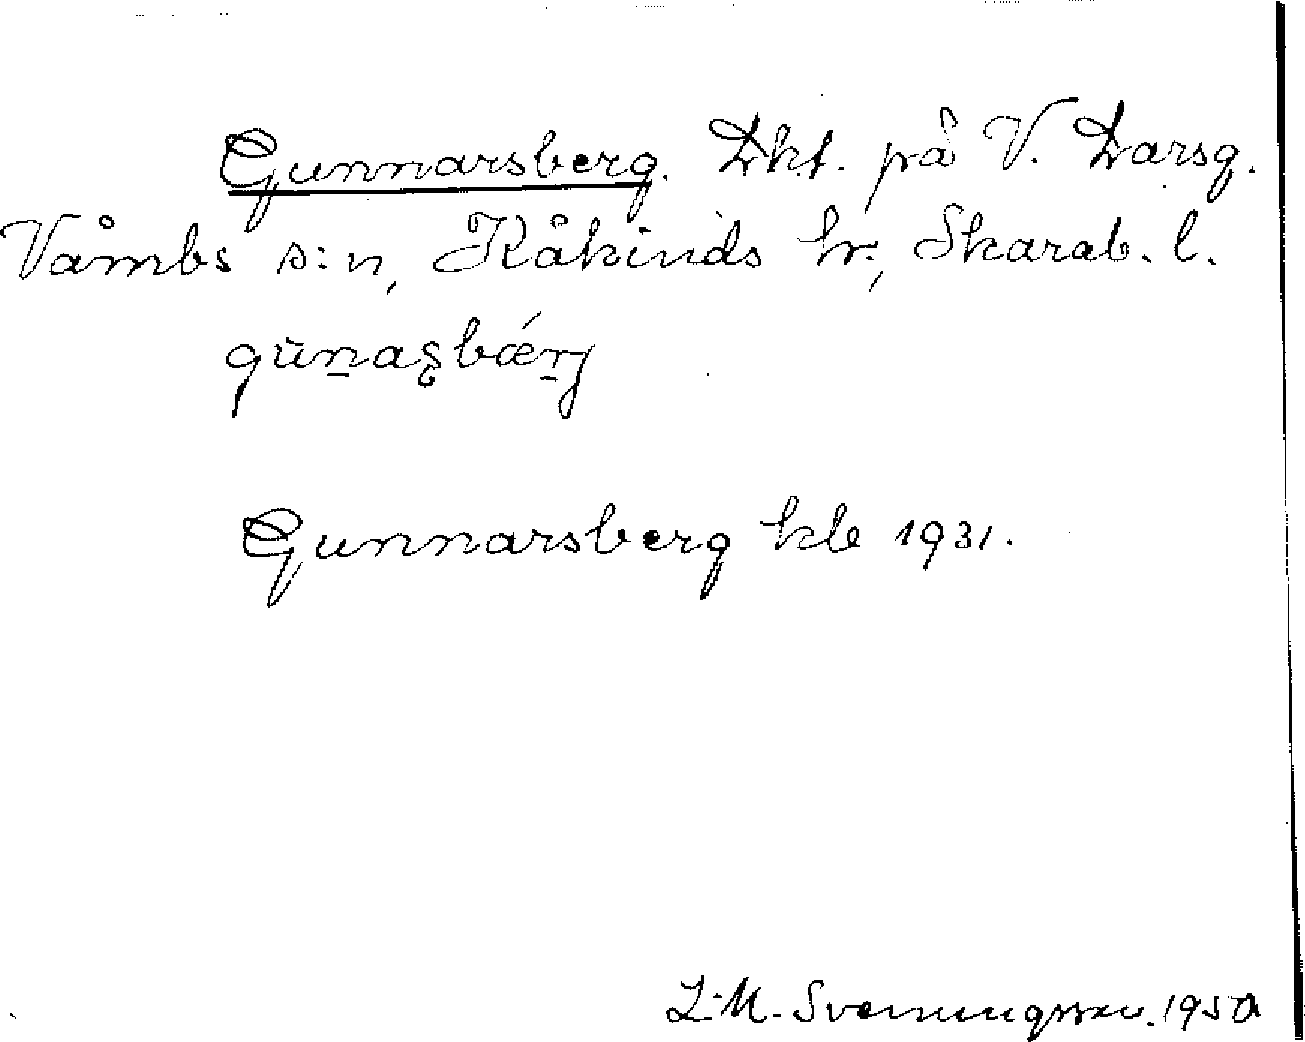 Gunnarsberg. Dkt. på V. Darsg.
Våmbs s:n, Kåkinds hr., Skarab. l.
gūnas̨bǽrj
Gunnarsberg kb 1931.
L-M. Svenningsson. 1950